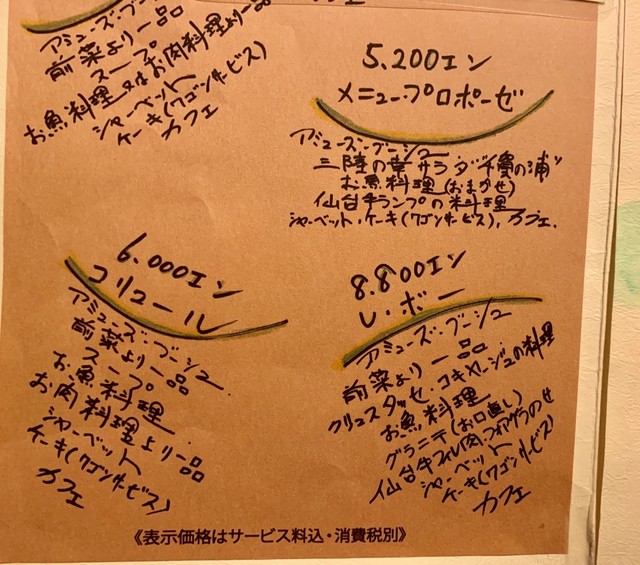 アミューズ・ブーシュ
前菜より一品
スープ
お魚料理又はお肉料理より一品
シャーベット
ケーキ(ワゴンサービス)
カフェ
5.200エン
メニュー・プロポーゼ
アミューズ・ブーシュ
三陸の幸サラダ"千賀の浦"
お魚料理(おまかせ)
仙台牛ランプの料理
シャーベット・ケーキ(ワゴンサービス),カフェ.
6.000エン
コリュール
アミューズ・ブーシュ
前菜より一品
スープ
お魚料理
お肉料理より一品
シャーベット
ケーキ(ワゴンサービス)
カフェ
8.800エン
レ・ボー
アミューズ・ブーシュ
前菜より一品
クリュスタッセ・コキヤージュの料理
お魚料理
グラニテ(お口直し)
仙台牛フィレ肉・フォアグラのせ
シャーベット
ケーキ(ワゴンサービス)
カフェ
《表示価格はサービス料込・消費税別》